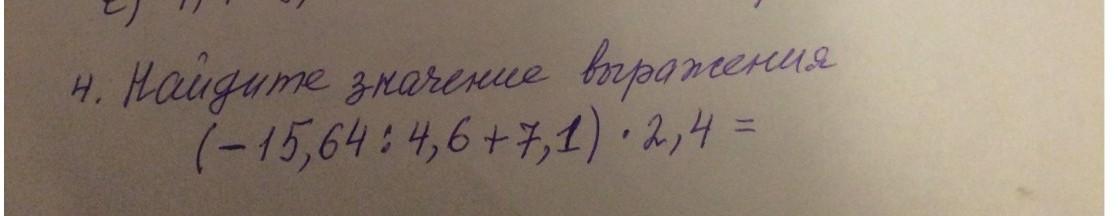 4. Найдите значение выражения
(-15,64:4,6+7,1)·2,4=